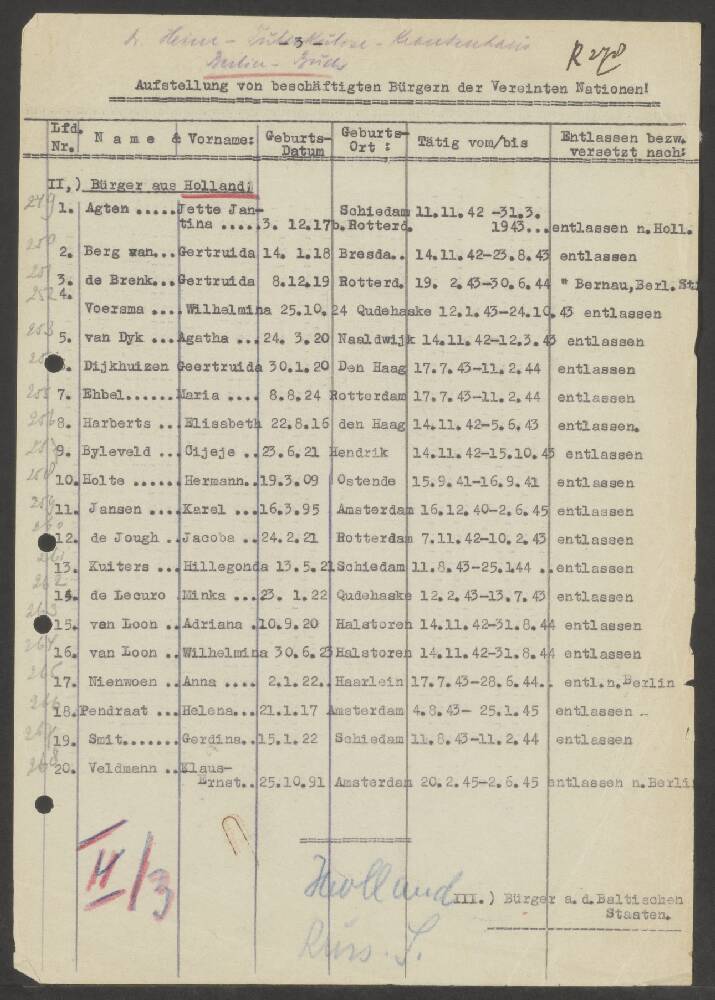 - 3 -
Dr. Heim - Tuberkulose - Krankenhaus
Berlin - Buch
R 278
Aufstellung von beschäftigten Bürgern der Vereinten Nationen!
Lfd. Nr. Name & Vorname: Geburts-Datum Geburts-Ort : Tätig vom/bis Entlassen bezw. versetzt nach:
II,) Bürger aus Holland:
249 1. Agten ..... Jette Jan-
tina .....3. 12.17 Schiedam b.Rotterd. 11.11.42 -31.3. 1943... entlassen n.Holl.
250 2. Berg van... Gertruida 14. 1.18 Bresda.. 14.11.42-23.8.43 entlassen
251 3. de Brenk... Gertruida 8.12.19 Rotterd. 19. 2.43-30.6.44 " Bernau,Berl.St
252 4. Voersma .... Wilhelmina 25.10.24 Qudehaske 12.1.43-24.10.43 entlassen
253 5. van Dyk ... Agatha ... 24. 3.20 Naaldwijk 14.11.42-12.3.43 entlassen
6. Dijkhuizen Geertruida 30.1.20 Den Haag 17.7.43-11.2.44 entlassen
255 7. Ehbel...... Maria .... 8.8.24 Rotterdam 17.7.43-11.2.44 entlassen
256 8. Harberts .. Elisabeth 22.8.16 den Haag 14.11.42-5.6.43 entlassen.
257 9. Byleveld .. Cijeje .. 23.6.21 Hendrik 14.11.42-15.10.43 entlassen
258 10. Holte ...... Hermann.. 19.3.09 Ostende 15.9.41-16.9.41 entlassen
259 11. Jansen .... Karel ... 16.3.95 Amsterdam 16.12.40-2.6.45 entlassen
260 12. de Jough .. Jacoba .. 24.2.21 Rotterdam 7.11.42-10.2.43 entlassen
261 13. Kuiters ... Hillegonda 13.5.21 Schiedam 11.8.43-25.1.44 .. entlassen
262 14. de Lecuro Minka ... 23. 1.22 Qudehaske 12.2.43-13.7.43 entlassen
263 15. van Loon .. Adriana . 10.9.20 Halstoren 14.11.42-31.8.44 entlassen
264 16. van Loon .. Wilhelmina 30.6.23 Halstoren 14.11.42-31.8.44 entlassen
265 17. Nienwoen .. Anna .... 2.1.22.. Haarlein 17.7.43-28.6.44.. entl.n.Berlin -
266 18. Pendraat ... Helena... 21.1.17 Amsterdam 4.8.43- 25.1.45 entlassen -
267 19. Smit....... Gerdina.. 15.1.22 Schiedam 11.8.43-11.2.44 entlassen
268 20. Veldmann .. Klaus-
Ernst.. 25.10.91 Amsterdam 20.2.45-2.6.45 entlassen n.Berli
II/3
Holland
III.) Bürger a.d.Baltischen
Staaten.